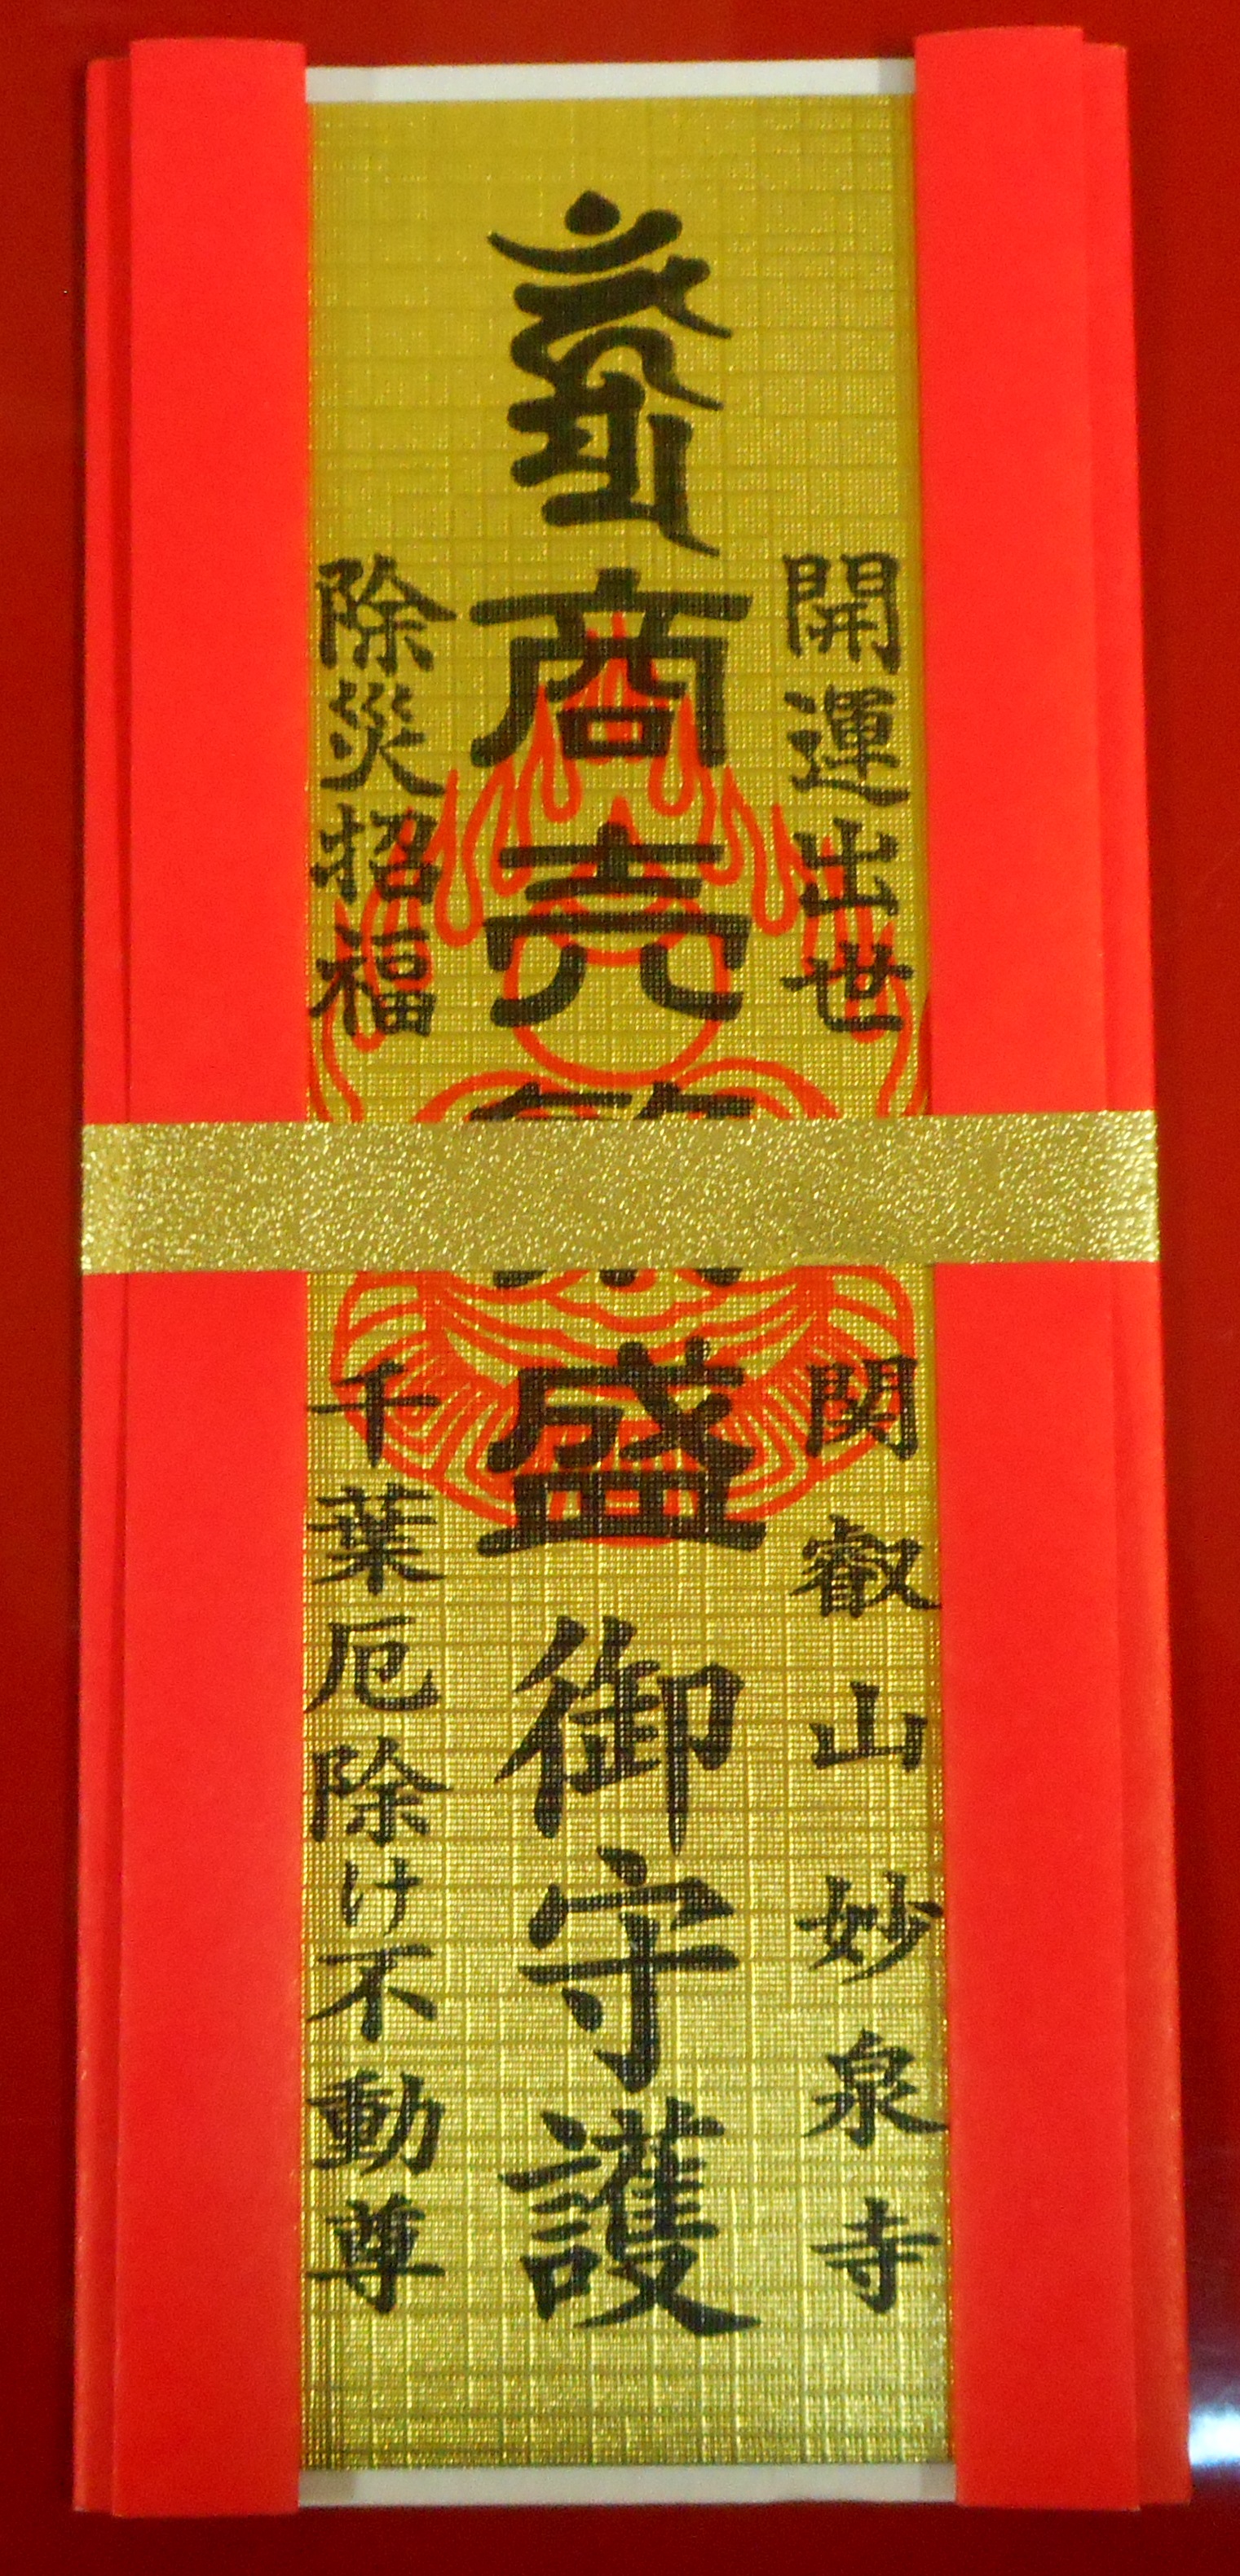 開運出世 関叡山妙泉寺
商売 盛御守護
除災招福 千葉厄除け不動尊